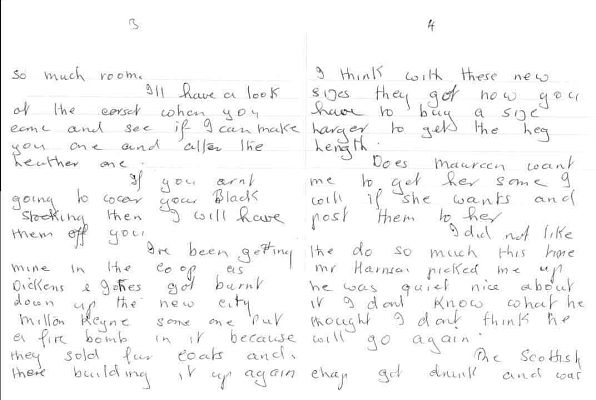 3
so much room.
I'll have a look
at the corset when you
come and see if I can make
you one and alter the
leather one.
If you arnt
going to wear your Black
Stocking then I will have
them off you
Ive been getting
mine in the coop as
Dickens & Jones got burnt
down up the new city
Millon Keyne some one put
a fire bomb in it because
they sold fur coats and
there building it up again
4
I think with these new
sizes they got now you
have to buy a size
larger to get the leg
Length.
Does maureen want
me to get her some I
will if she wants and
post them to her
I did not like
the do so much this time
mr picked me up
he was quiet nice about
it I dont know what he
thought I dont think he
will go again.
The Scottish
chap got drunk and was